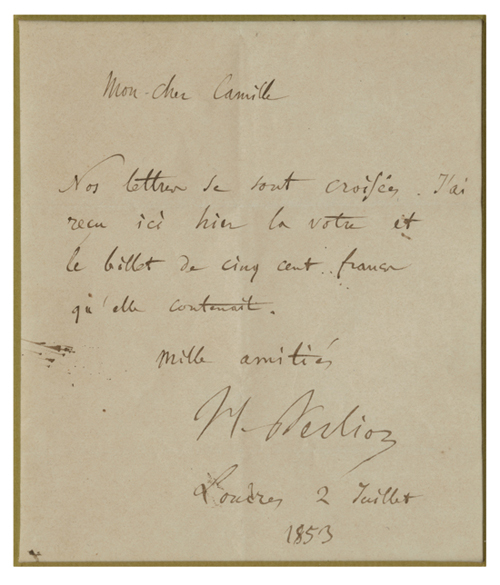 Mon cher Camille
Nos lettres se sont croisées. J'ai
reçu ici hier la votre et
le billet de cinq cent francs
qu'elle contenait.
mille amitiés
H. Berlioz
Londres 2 Juillet
1853